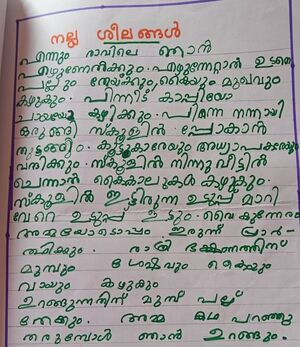 നല്ല ശീലങ്ങൾ
എന്നും രാവിലെ ഞാൻ
എഴുന്നേൽക്കും. എഴുന്നേറ്റാൽ ഉടനെ
പല്ലും തേയ്ക്കും, കൈയും മുഖവും
കഴുകും. പിന്നീട് കാപ്പിയോ
ചായയോ കുടിക്കും. പിന്നെ നന്നായി
ഒരുങ്ങി സ്കൂളിൽ പോകാൻ
തുടങ്ങും. കൂട്ടുകാരേയും അധ്യാപകരേയും
വന്ദിക്കും. സ്കൂളിൽ നിന്നു വീട്ടിൽ
ചെന്നാൽ കൈകാലുകൾ കഴുകും.
സ്കൂളിൽ ഇട്ടിരുന്ന ഉടുപ്പ് മാറി
വേറെ ഉടുപ്പ് ഇടും. വൈകുന്നേരം
അമ്മയോടൊപ്പം ഇരുന്ന് പ്രാർ-
ത്ഥിക്കും. രാത്രി ഭക്ഷണത്തിന്
മുമ്പും ശേഷവും കൈയും
വായും കഴുകും
ഉറങ്ങുന്നതിന് മുമ്പ് പല്ല്
തേക്കും. അമ്മ കഥ പറഞ്ഞു
തരുമ്പോൾ ഞാൻ ഉറങ്ങും.